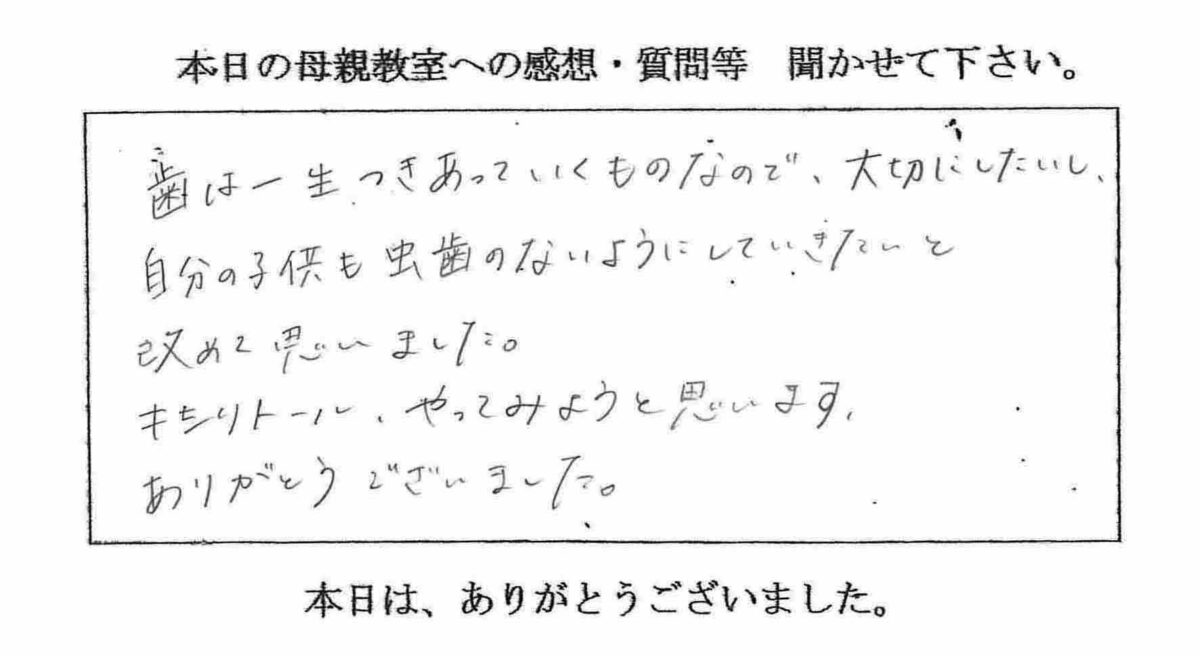 本日の母親教室への感想・質問等　聞かせて下さい。
歯は一生つきあっていくものなので、大切にしたいし、
自分の子供も虫歯のないようにしていきたいと
改めて思いました。
キシリトール、やってみようと思います。
ありがとうございました。
本日は、ありがとうございました。